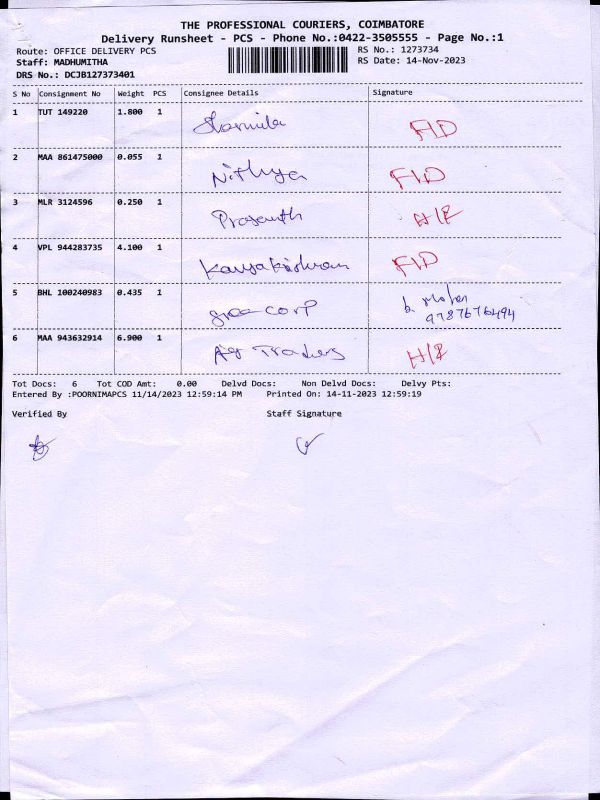 THE PROFESSIONAL COURIERS, COIMBATORE
Delivery Runsheet - PCS - Phone No.:0422-3505555 - Page No.:1
Route: OFFICE DELIVERY PCS RS No.: 1273734
Staff: MADHUMITHA RS Date: 14-Nov-2023
DRS No.: DCJB127373401
S No Consignment No Weight PCS Consignee Details Signature
1 TUT 149220 1.800 1 Sharmila F/D
2 MAA 861475000 0.055 1 Nithya F/D
3 MLR 3124596 0.250 1 Prasanth H/R
4 VPL 944283735 4.100 1 F/D
5 BHL 100240983 0.435 1 corp
9787676494
6 MAA 943632914 6.900 1 Traders H/R
Tot Docs: 6 Tot COD Amt: 0.00 Delvd Docs: Non Delvd Docs: Delvy Pts:
Entered By :POORNIMAPCS 11/14/2023 12:59:14 PM Printed On: 14-11-2023 12:59:19
Verified By Staff Signature